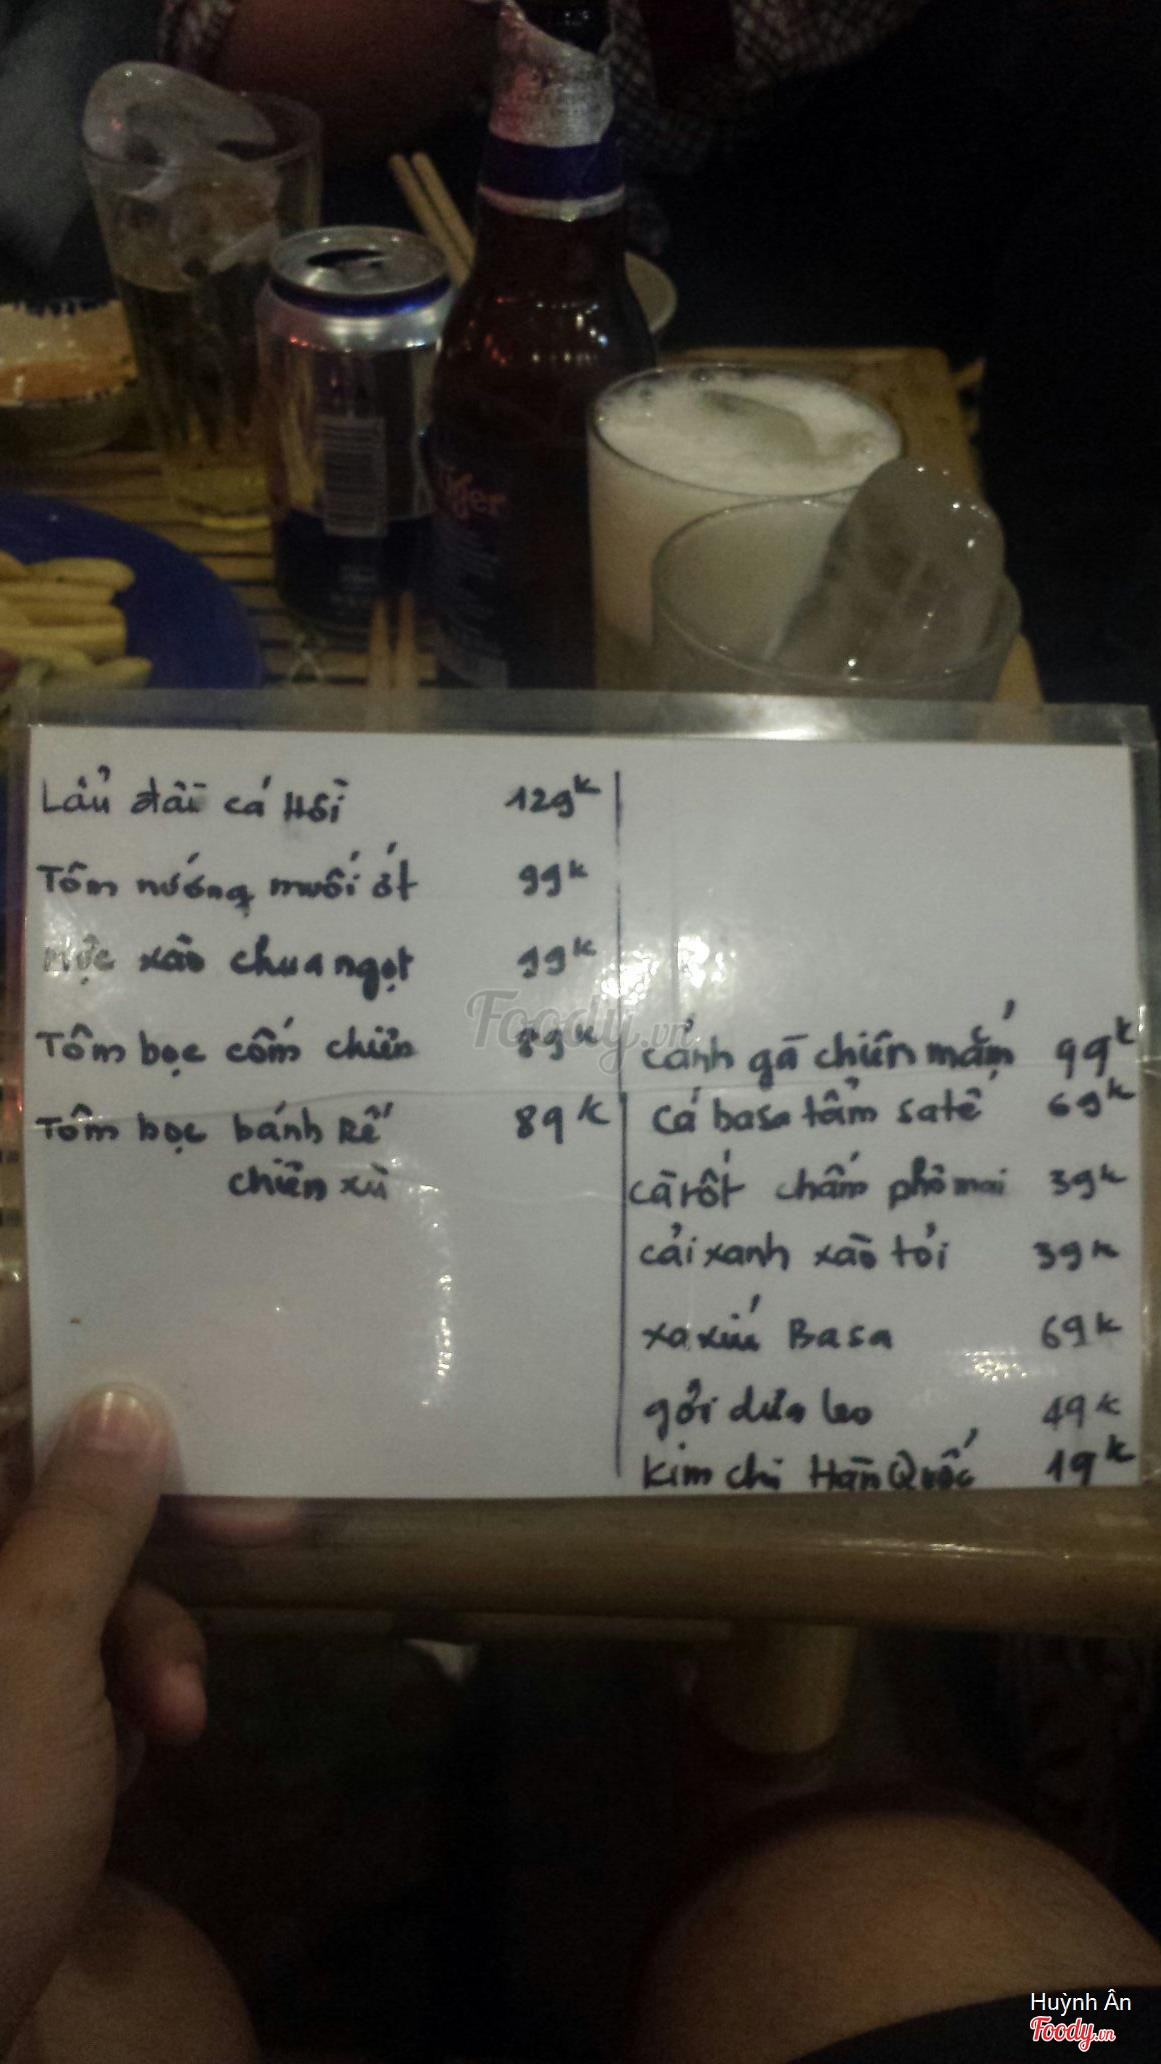 Tiger
Lẩu đầu cá Hồi 129k
Tôm nướng muối ớt 99k
Mực xào chua ngọt 99k
Tôm bọc cốm chiên 89k
Tôm bọc bánh Rế 89k
chiên xù
Foody.vn
cánh gà chiên mắm 99k
cá basa tẩm satế 69k
cà rốt chấm phô mai 39k
cải xanh xào tỏi 39k
xa xíu Basa 69k
gỏi dưa leo 49k
Kim chi Hàn Quốc 19k
Huỳnh Ân
Foody.vn